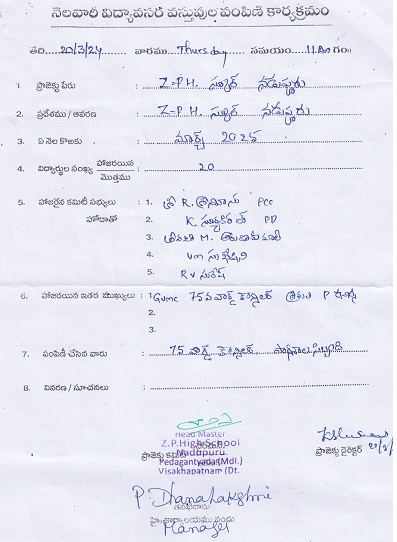 నెలవారీ విద్యావసర వస్తువుల పంపిణీ కార్యక్రమం
తేది: 20/3/24 వారము Thursday సమయం: 11 గం॥
1. ప్రాజెక్టు పేరు : Z-P.H. స్కూల్ నడుపూరు
2. ప్రదేశము / ఆవరణ : Z-P H. స్కూల్ నడుపూరు
3. ఏ నెల కొఱకు : మార్చి
4. విద్యార్థుల సంఖ్య హాజరయిన / మొత్తము : 20
5. హాజరైన కమిటీ సభ్యులు హోదాతో : 1. శ్రీ R. శ్రీనివాసు
2. K.
3. శ్రీమతి M. అరుణకుమారి
4.
5. R V సురేష్
6. హాజరయిన ఇతర ముఖ్యులు : 1 Gvmc 75వ వార్డ్ కౌన్సిలర్ శ్రీమతి P
2.
3.
7. పంపిణీ చేసిన వారు : 75 వార్డ్ కౌన్సిలర్, పాఠశాల సిబ్బంది
8. వివరణ / సూచనలు :
Head Master
Z.P.High School
Nadupuru
Pedagantyada(Mdl.)
Visakhapatnam (Dt.
ప్రాజెక్టు కమిటీ
ప్రాజెక్టు డైరెక్టర్
P. Dhanalakshmi
Manager